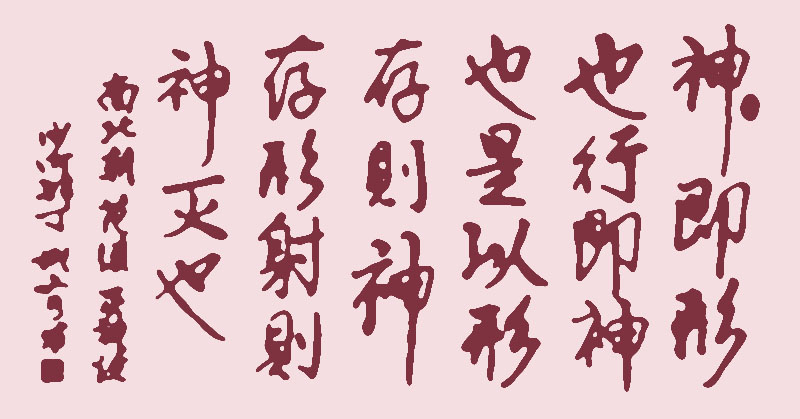 神即形
也行即神
也是以形
存則神
存形射則
神灭也
南北朝